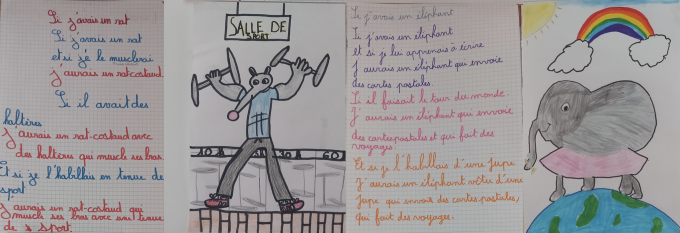 Si j'avais un rat
Si j'avais un rat
et si je le musclerai
j'aurais un rat-costaud
Si il avait des
haltères
j'aurais un rat-costaud avec
des haltères qui muscle ses bras.
Et si je l'habillais en tenue de
sport
j'aurais un rat-costaud qui
muscle ses bras avec un tenue
de s sport.
SALLE DE
SPORT
Si j'avais un éléphant
Si j'avais un éléphant
et si je lui apprenais à écrire
J'aurais un éléphant qui envoie
des cartes postales.
Si il faisait le tour du monde.
J'aurais un éléphant qui envoie
des cartespostales et qui fait des
voyages.
Et si je l'habillais d'une jupe
J'aurais un éléphant vêtue d'une
jupe qui envoie des cartes postales,
qui fait des voyages.